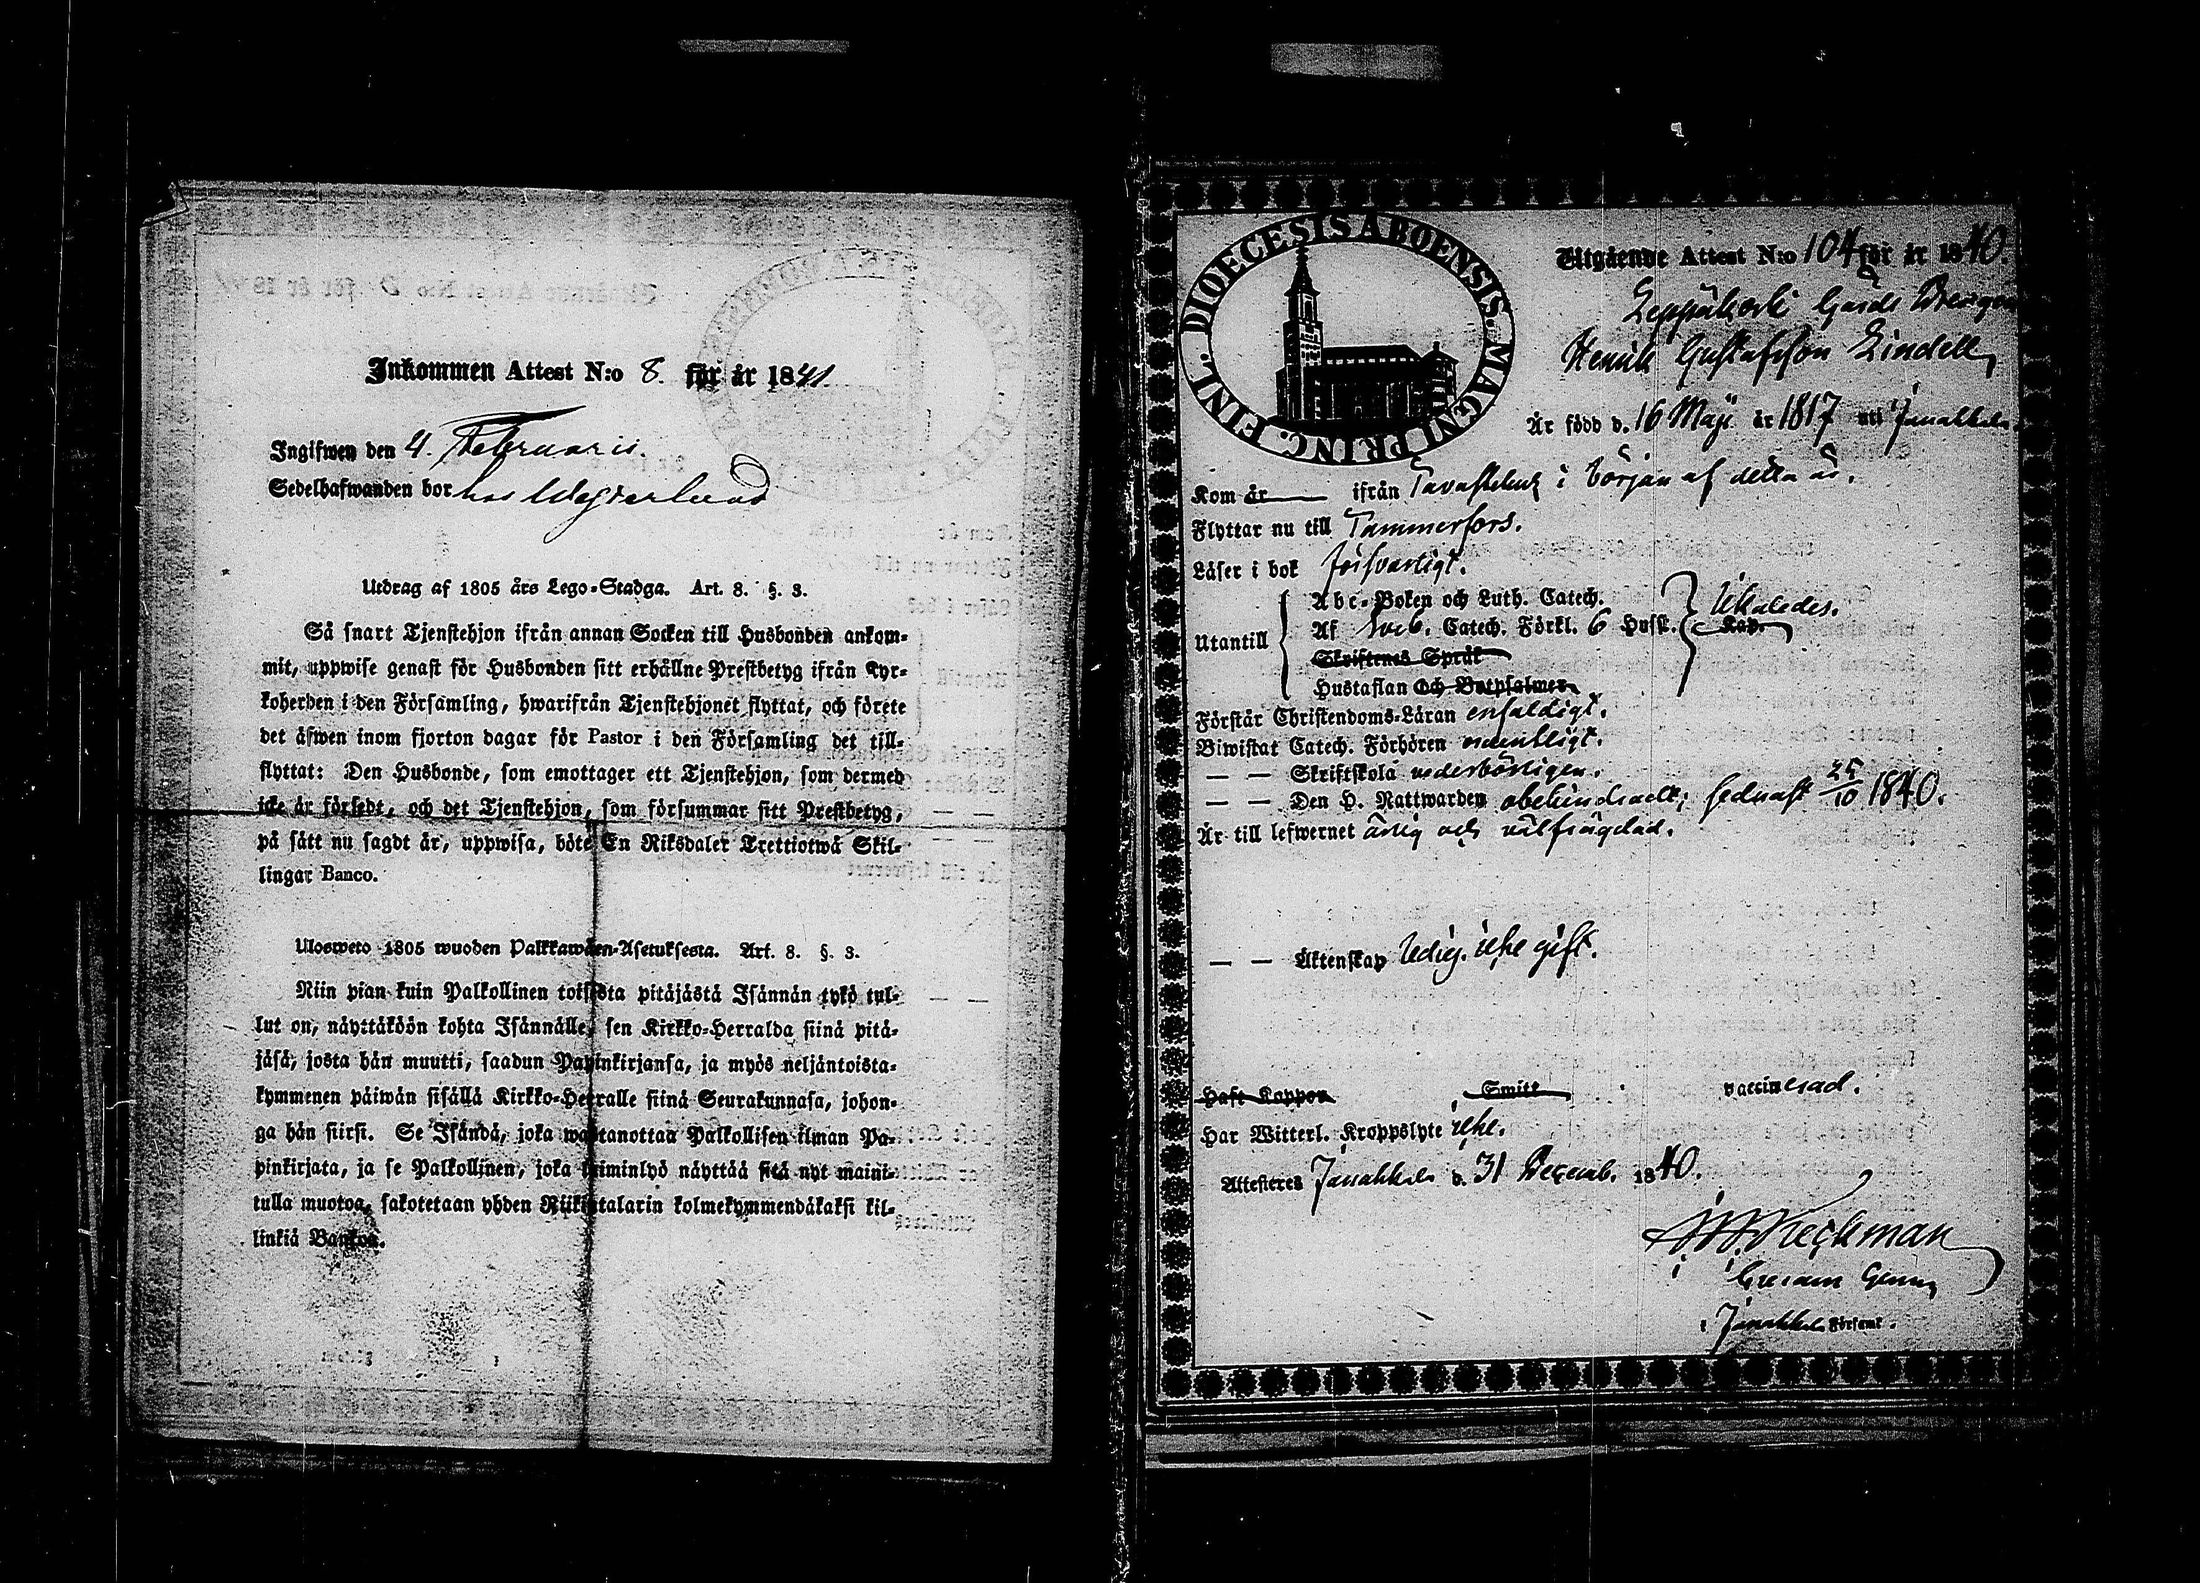 Inkommen Attest N:o 8. för år 1841
Ingifwen den 4. Februarii.
Sedelhafwanden bor hos Westerlund
Utdrag af 1805 års Lego-Stadga. Art. 8. §. 3.
Så snart Tjenstehjon ifrån annan Socken till Husbonden ankom-
mit, uppwise genast för Husbonden sitt erhållne Prestbetyg ifrån Kyr-
koherden i den Församling, hwarifrån Tjenstehjonet flyttat, och förete
det äfwen inom fjorton dagar för Pastor i den Församling det till-
flyttat: Den Husbonde, som emottager ett Tjenstehjon, som dermed
icke är försedt, och det Tjenstehjon, som försummar sitt Prestbetyg,
på sätt nu sagdt är, uppwisa, böte En Riksdaler Trettiotwå Skil-
lingar Banco.
Ulosweto 1805 wuoden Palkkawäen-Asetuksesta. Art. 8. §. 3.
Niin pian kuin Palkollinen toisesta pitäjästä Isännän tykö tul-
lut on, näyttäköön kohta Isännälle, sen Kirkko-Herralda siinä pitä-
jäsä, josta hän muutti, saadun Papinkirjansa, ja myös neljäntoista-
kymmenen päiwän sisällä Kirkko-Herralle siinä Seurakunnasa, johon-
ga hän siirsi. Se Isändä, joka wastanottaa Palkollisen ilman Pa-
pinkirjata, ja se Palkollinen, joka laiminlyö näyttää sitä nyt maini-
tulla muotoa, sakotetaan yhden Riikintalarin kolmekymmendäkaksi kil-
linkiä Bankoa.
DIOECESIS ABOENSIS. MAGNI PRINC. FINL.
Utgående Attest N:o 104 för år 1840.
Leppäkoski Gårds Drengen
Henrik Gustafsson Lindell,
Är född d. 16 Maji år 1817 uti Janakkala.
Kom år ifrån Tavastehus i början af detta år.
Flyttar nu till Tammerfors.
Läser i bok försvarligt.
Utantill
Abc-Boken och Luth. Catech.
Af Sveb. Catech. Förkl. 6 Hufst.
Kap.
Likaledes.
Skriftenes Språk
Hustaflan och Botpsalmer
Förstår Christendoms-Läran enfaldigt.
Biwistat Catech. Förhören ordentligt.
— — Skriftskola vederbörligen.
— — Den H. Nattwarden obehindradt; sednast 25/10 1840.
Är till lefwernet ärlig och välfrägdad.
— — Äktenskap ledig. icke gift.
Haft Koppor Smitt vaccinerad.
Har Witterl. Kroppslyte icke.
Attesteres Janakkala d. 31 Decemb. 1840.
i Janakkala Församl.